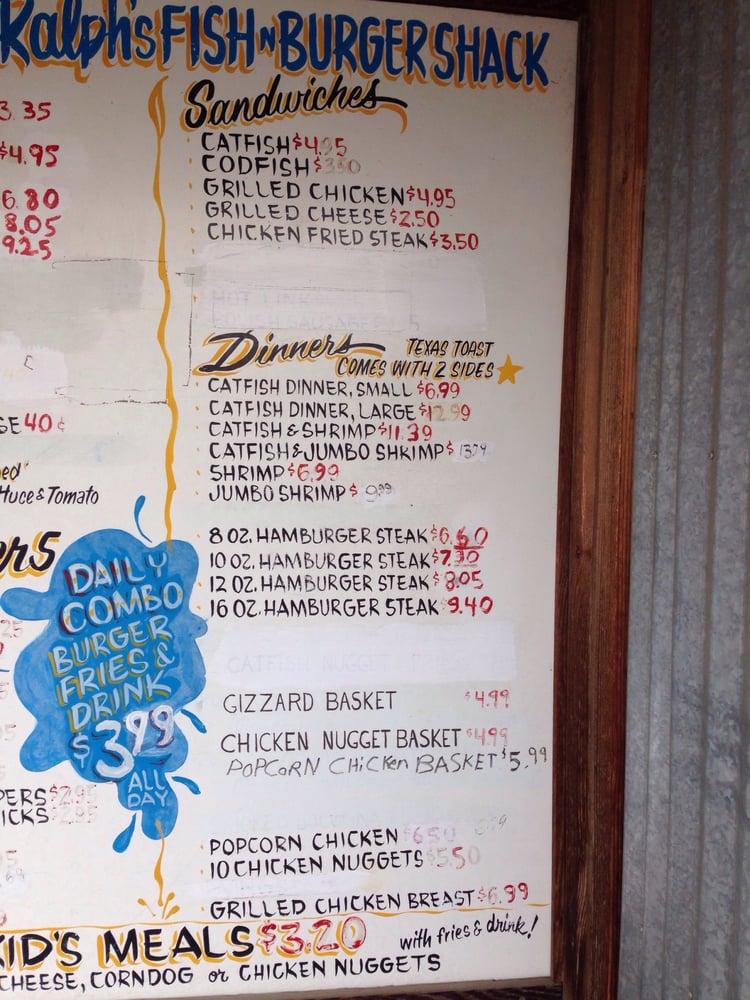 Ralph's FISH N BURGER SHACK
3.35
$4.95
6.80
8.05
9.25
40¢
& Tomato
DAILY
COMBO
BURGER
FRIES &
DRINK
$3.99
ALL
DAY
$2.95
$2.95
Sandwiches
CATFISH $4.95
CODFISH $3.50
GRILLED CHICKEN $4.95
GRILLED CHEESE $2.50
CHICKEN FRIED STEAK $3.50
HOT LINK
POLISH SAUSAGE
Dinners TEXAS TOAST
COMES WITH 2 SIDES
CATFISH DINNER, SMALL $6.99
CATFISH DINNER, LARGE $12.99
CATFISH & SHRIMP $11.39
CATFISH & JUMBO SHRIMP $ 13.79
SHRIMP $6.99
JUMBO SHRIMP $ 9.99
8 OZ. HAMBURGER STEAK $6.60
10 OZ. HAMBURGER STEAK $7.30
12 OZ. HAMBURGER STEAK $8.05
16 OZ. HAMBURGER STEAK 9.40
CATFISH NUGGET
GIZZARD BASKET $4.99
CHICKEN NUGGET BASKET $4.99
POPCORN CHICKEN BASKET $5.99
POPCORN CHICKEN $6.50
10 CHICKEN NUGGETS $5.50
GRILLED CHICKEN BREAST $6.99
KID'S MEALS $3.20 with fries & drink!
CHEESE, CORNDOG or CHICKEN NUGGETS